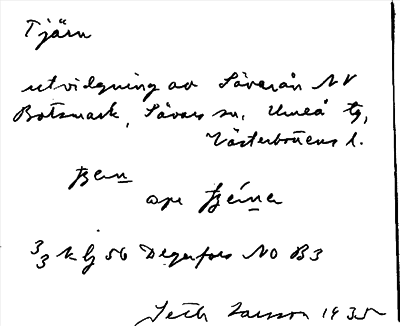 Tjärn
utvidgning av Sävarån NV
Botsmark, Sävars sn, Umeå tg,
Västerbottens l.
tjen
tjéna
3/3 kbj 56 Degerfors NO B3
Seth Larsson 1935